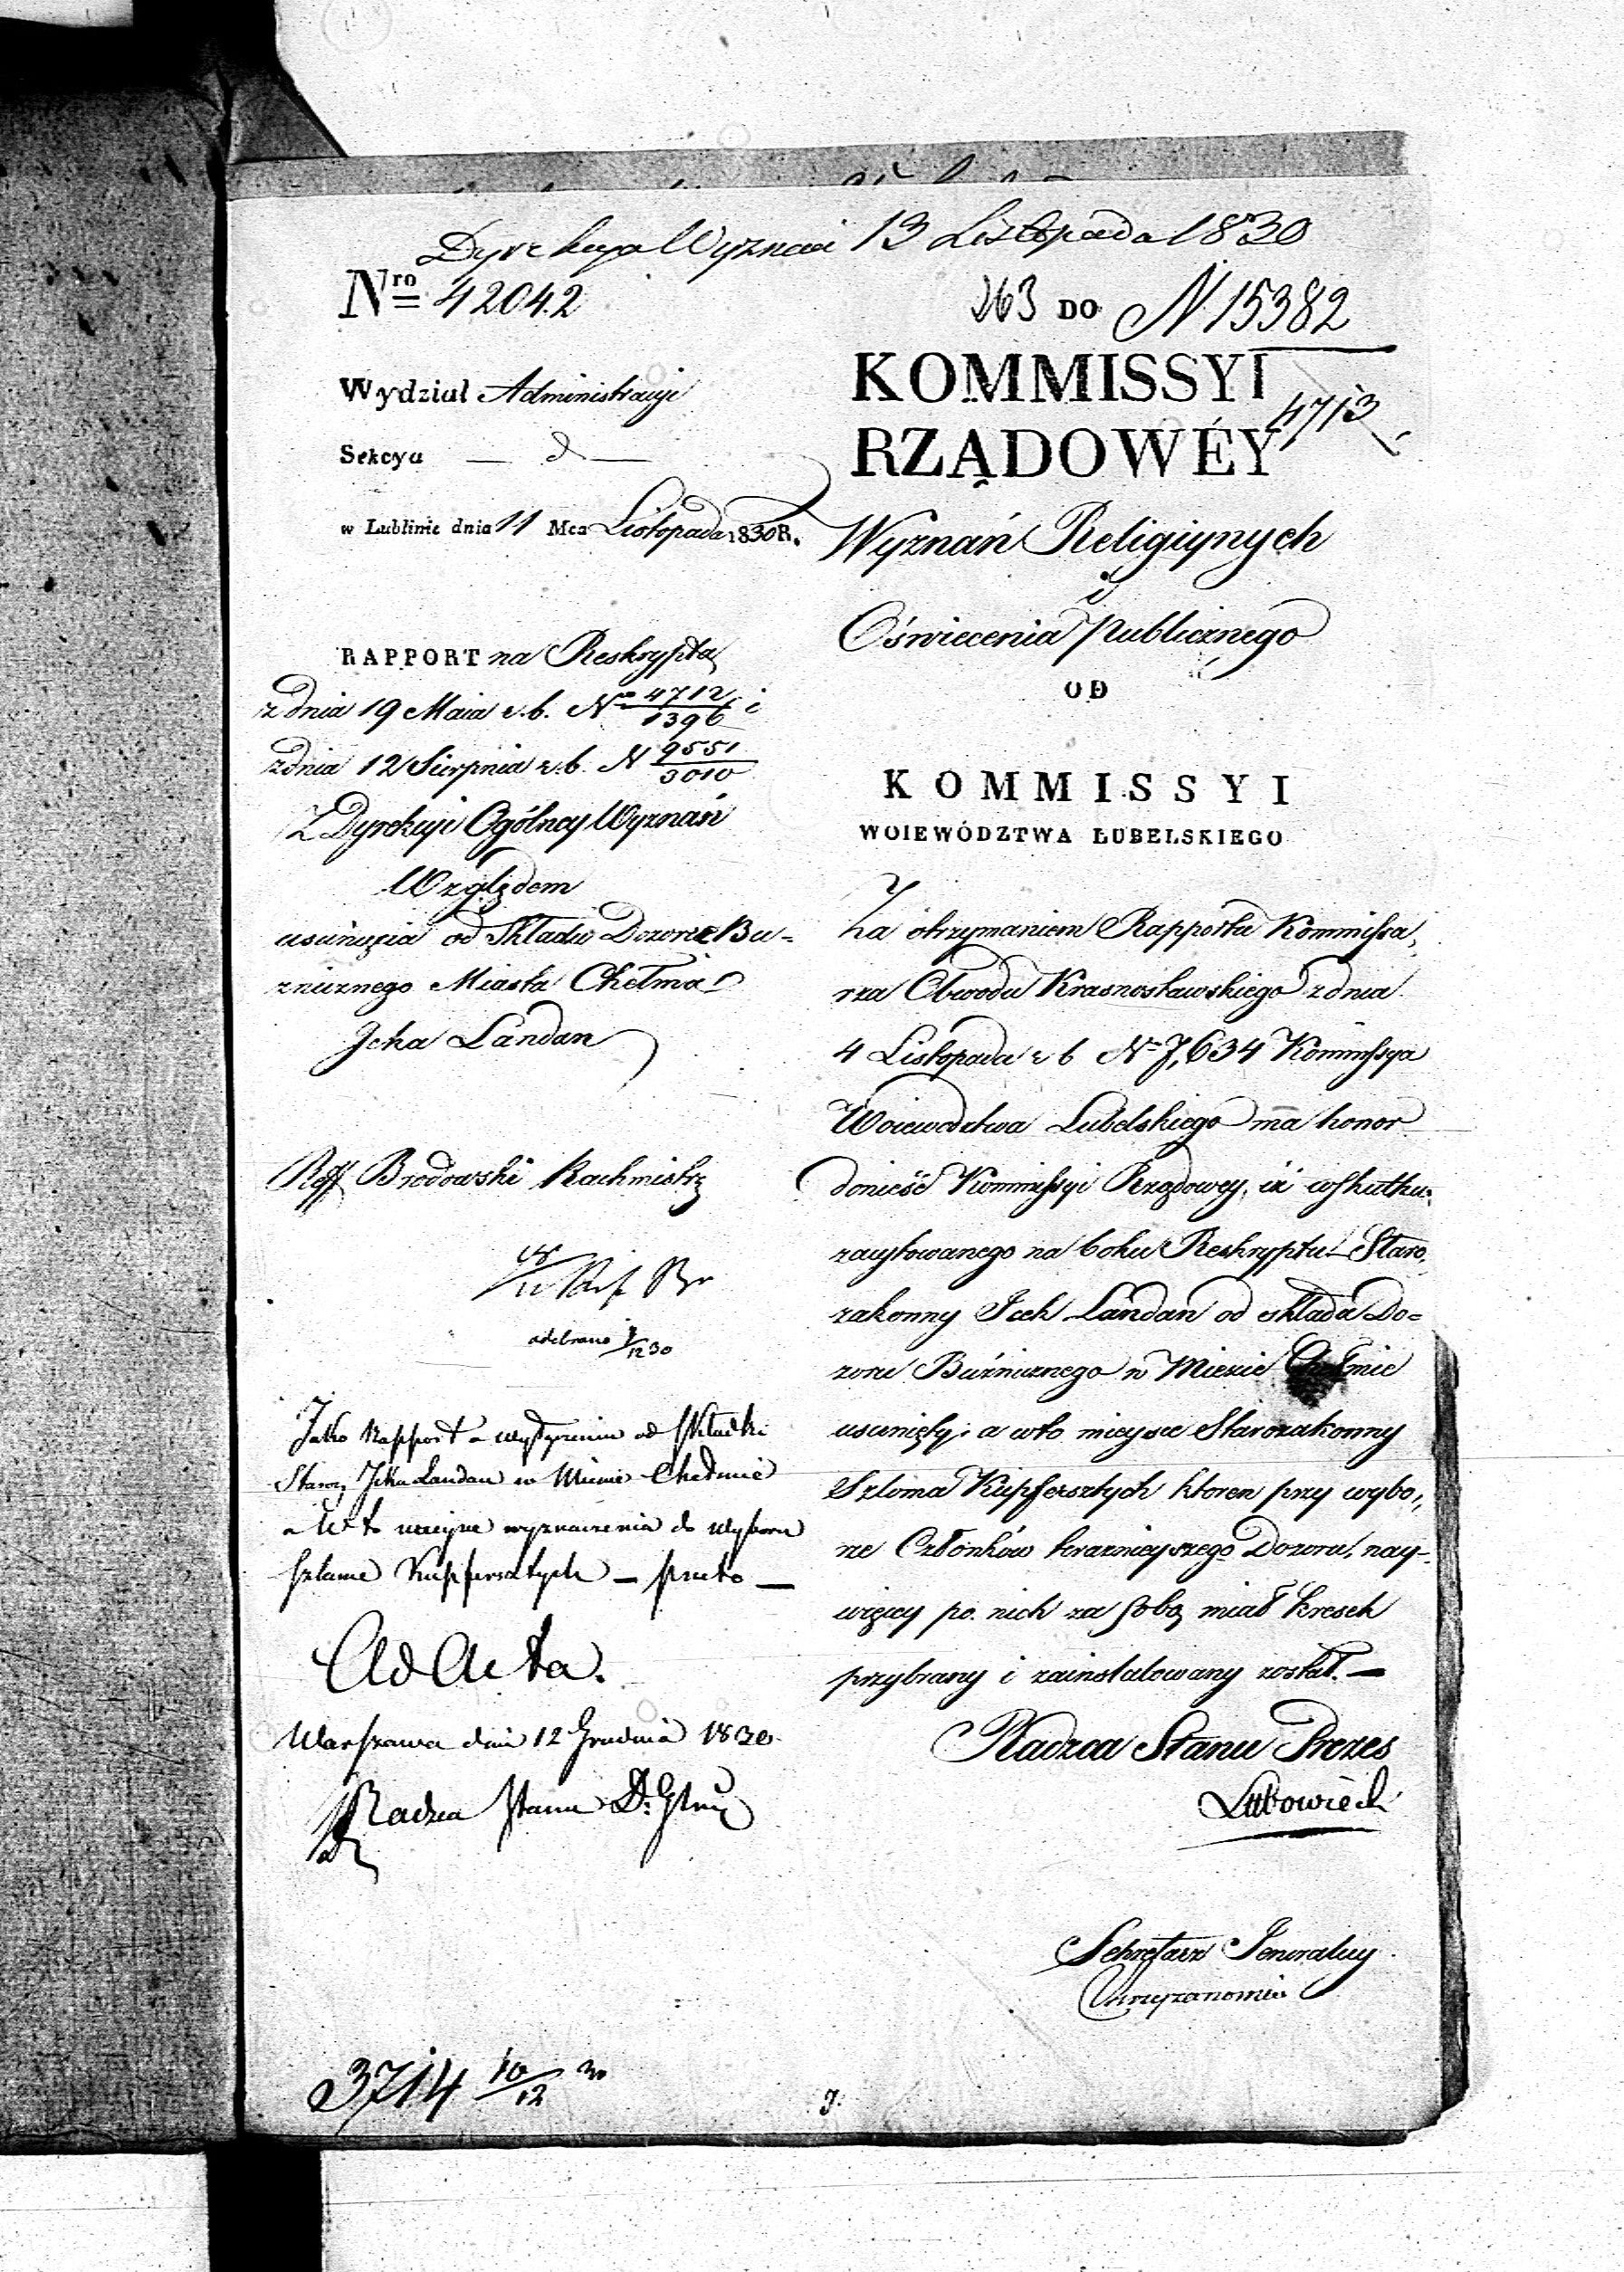 Dyrekcya Wyznań 13 Listopada 1830
Nro 42042
Wydział Administracyi
Sekcya
w Lublinie dnia 11 Mca Listopada 1830 R.
RAPPORT na Reskrypta
z dnia 19 Maia r.b. No 4712/1396 i
z dnia 12 Sierpnia r.b. N 9551/3010
Z Dyrekcyi Ogólney Wyznań
Względem
usunięcia od Składu Dozoru Bu-
źnicznego Miasta Chełma
Icka Landau
Reff Brodowski Rachmistrz
odebrano
12 30
Jako Rapport o usunieniu od Składki
Staroz. Icka Landau w Mieście Chełmie
a w to mieysce wyznaczenia do wyboru
Szlame Kupfersztych — przeto —
Ad Acta.
Warszawa dnia 12 Grudnia 1830.
Radzca Stanu D.
3714 10/12 30
263 DO N 15382
4713
KOMMISSYI
RZĄDOWÉY
Wyznań Religiynych
i
Oświecenia Publicznego
OD
KOMMISSYI
WOIEWÓDZTWA LUBELSKIEGO
Za otrzymaniem Rapportu Kommissa,
rza Obwodu Krasnostawskiego z dnia
4 Listopada r b No 7,634 Kommissya
Woiewództwa Lubelskiego ma honor
donieść Kommissyi Rządowey, iż w skutku
zacytowanego na boku Reskryptu Staro,
zakonny Icek Landau od składu Do=
zoru Buźnicznego w Mieście Chełmie
usunięty, a w to mieysce Starozakonny
Szloma Kupfersztych ktoren przy wybo,,
rze Członków teraznieyszego Dozoru, nay-
więcey po nich za sobą miał kresek
przybrany i zainstalowany został. —
Radzca Stanu Prezes
Lubowiecki
Sekretarz Jeneralny